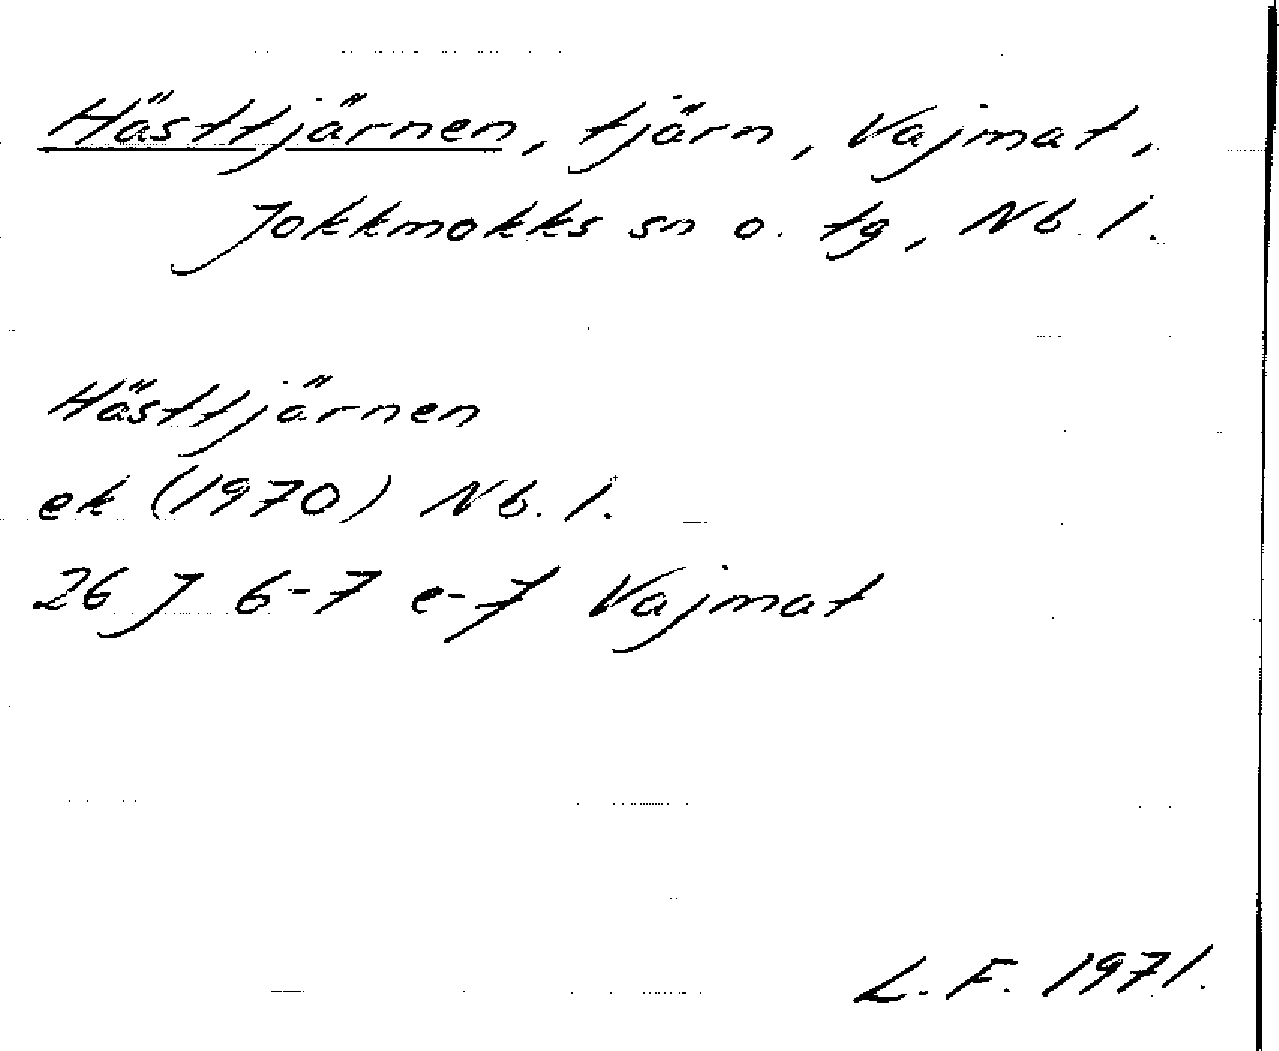 Hästtjärnen, tjärn, Vajmat,
Jokkmokks sn o. tg, Nb. l.
Hästtjärnen
ek (1970) Nb. l.
26 J 6-7 e-f Vajmat
L. F. 1971.